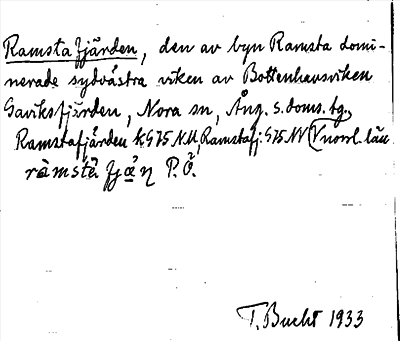 Ramsta fjärden, den av byn Ramsta domi-
nerade sydvästra viken av Bottenhavsviken
Gaviksfjärden, Nora sn, Ång. s. doms. tg.,
Ramstafjärden k G75 NU, Ramstafj: G75 NV Vnorrl. län
ràmstè fjæ̀ η P.Ö.
T. Bucht 1933